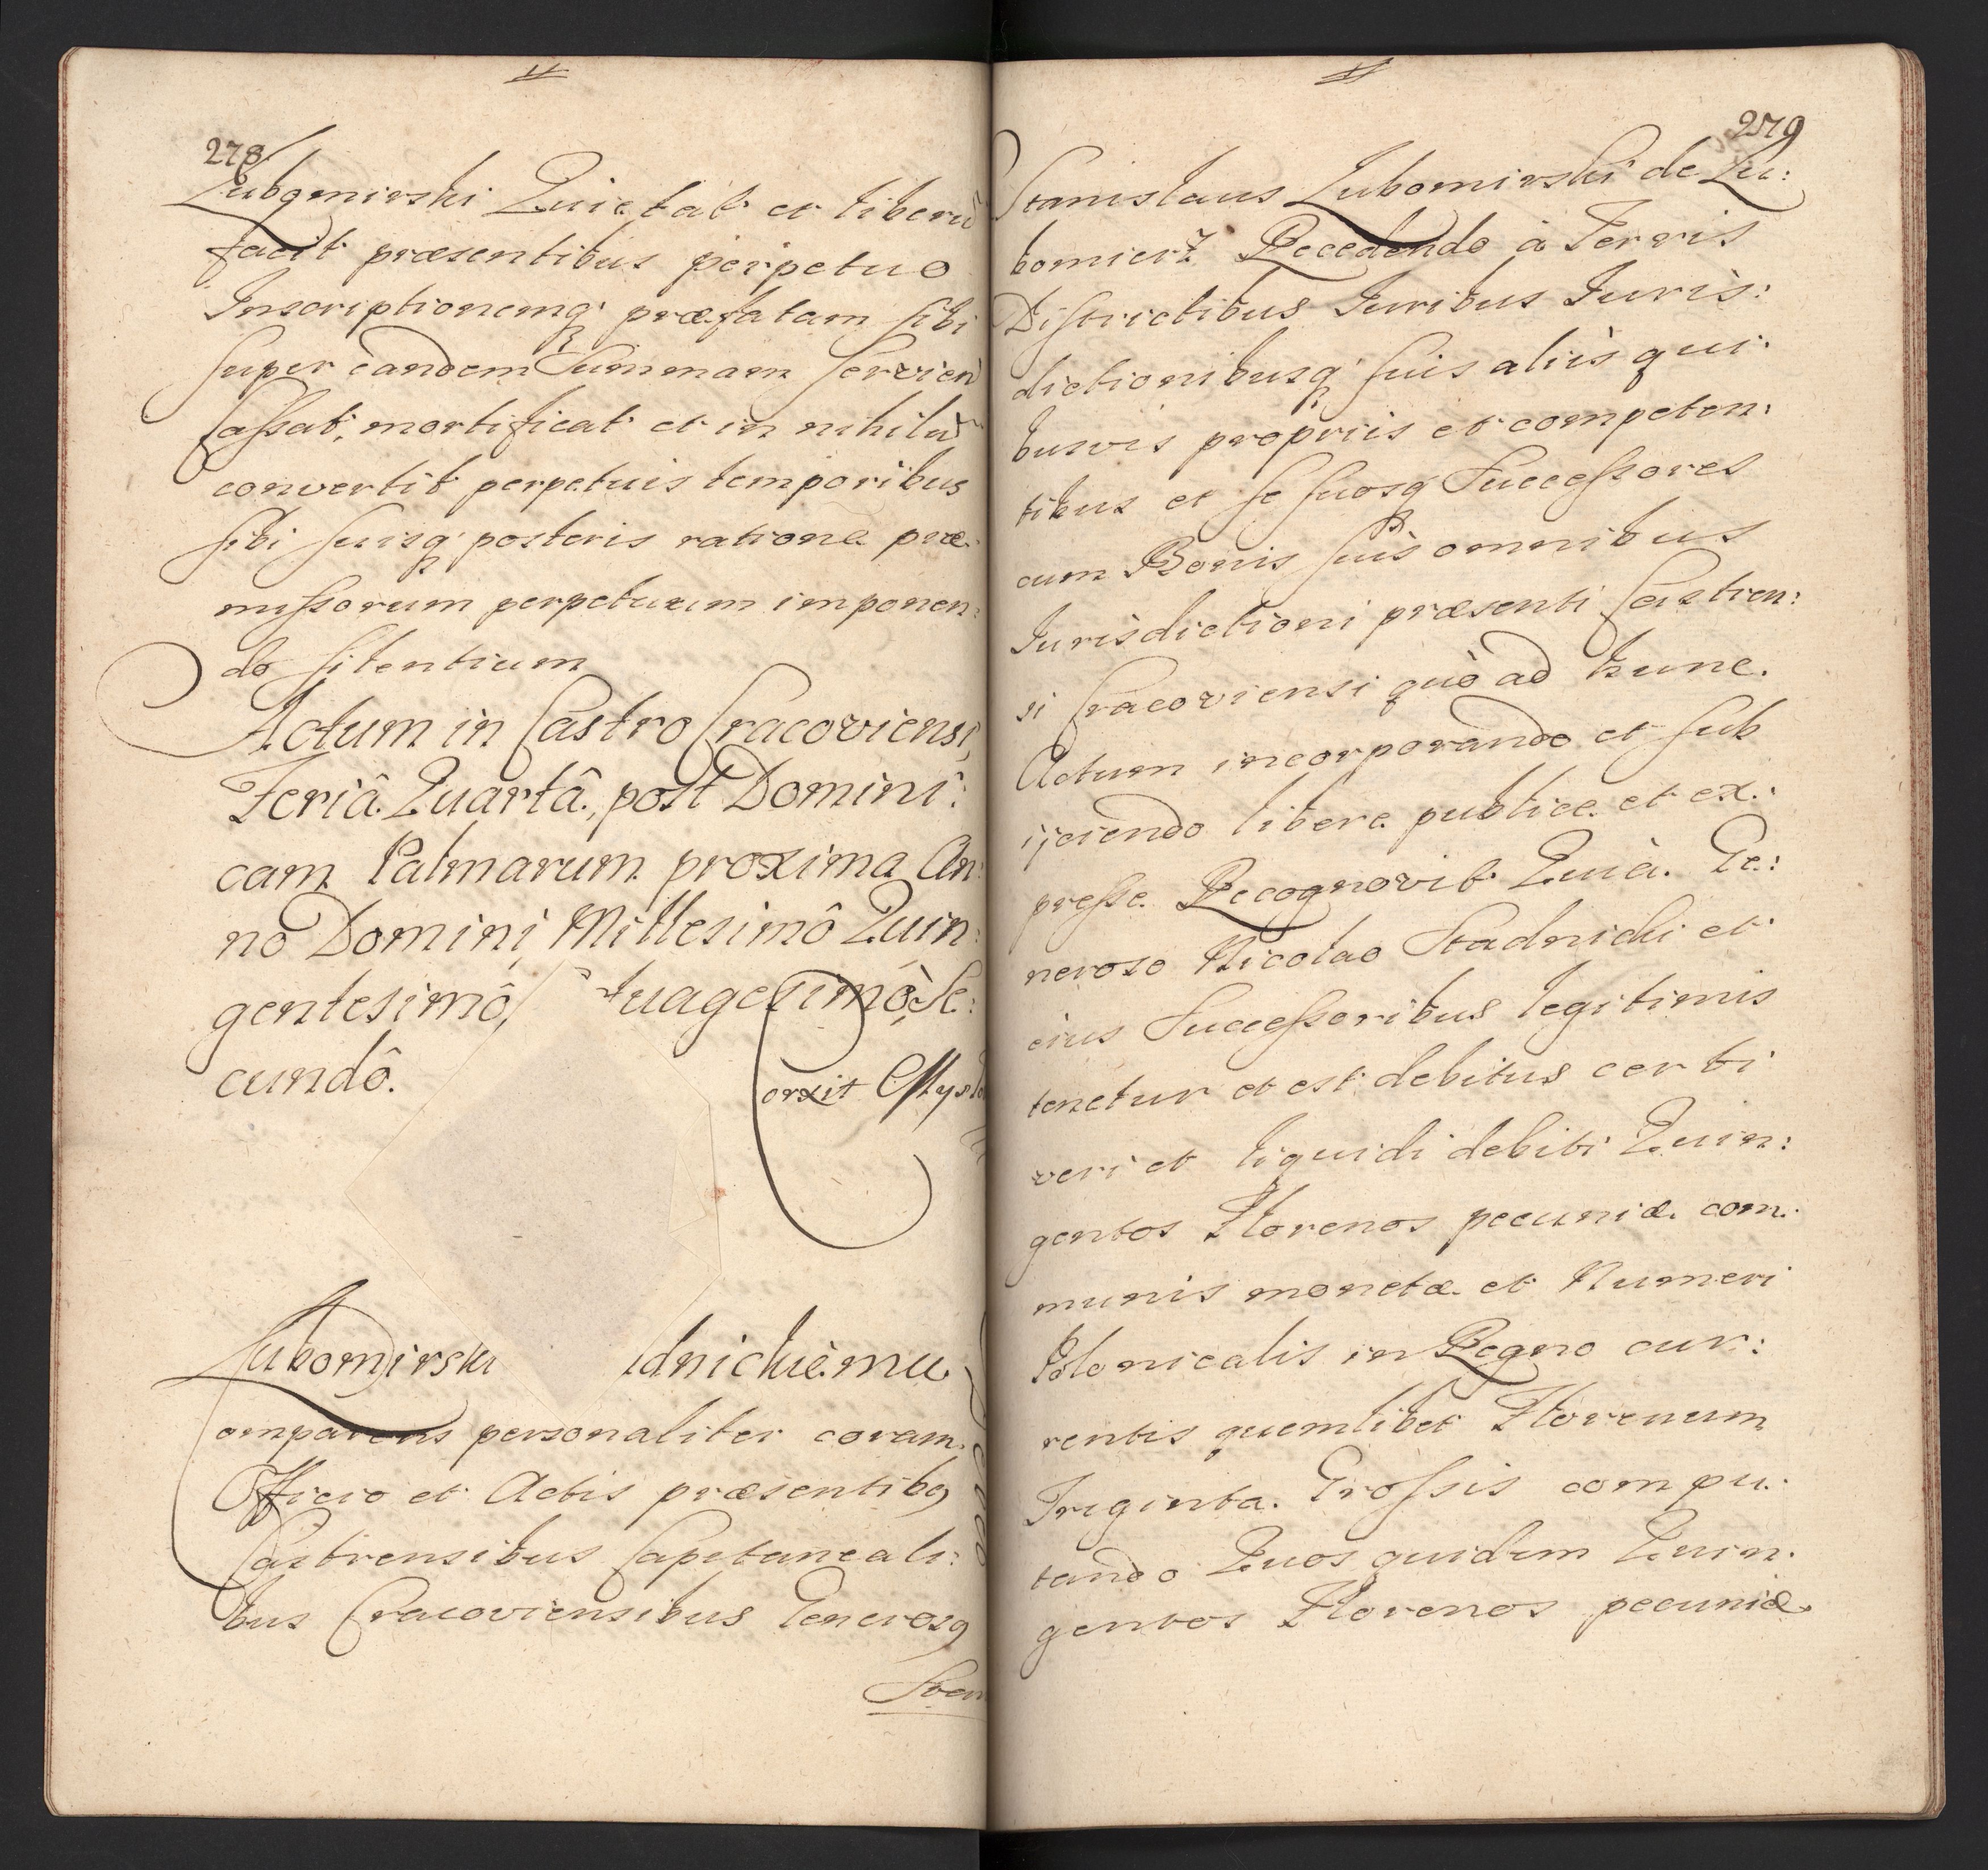 278
Lubomirski Quietat et liberũ
facit præsentibus perpetuo
Inscriptionemq; præfatam sibi
super eandem Summam servien
Cassat, mortificat et in nihilũ
convertit perpetuis temporibus
sibi suisq; posteris ratione præ:
missorum perpetuum imponen:
do silentium
Actum in Castro Cracoviensi,
Feriâ Quartâ, post Domini:
cam Palmarum proxima An:
no Domini Millesimô Quin:
gentesimô, tuagesimò Se:
cundô.
Lubomirski dnickiemu
Comparens personaliter coram
Officio et Actis præsentibq
Castrensibus Capitaneali:
bus Cracoviensibus Generosq
Stan
279
Stanislaus Lubomirski de Lu:
bomierz Recedendo à Terris
Districtibus Iuribus Iuris:
dictionibusq; suis aliìs qui:
busvis propriis et competen:
tibus et se suosq Successores
cum Bonis suìs omnibus
Iurisdictioni præsenti Castren:
si Cracoviensi quò ad hunc
Actum incorporando et sub
ijciendo libere publice et ex:
presse Recognovit Quià Ge:
neroso Nicolao Stadnicki et
eius Successoribus legitimis
tenetur et est debitus certi
veri et liquidi debiti Quin:
gentos Florenos pecuniæ com:
munis monetæ et Numeri
Polonicalis in Regno cur:
rentis quemlibet Florenum
Triginta Grossis compu:
tando Quos quidem Quin:
gentos Florenos pecuniæ